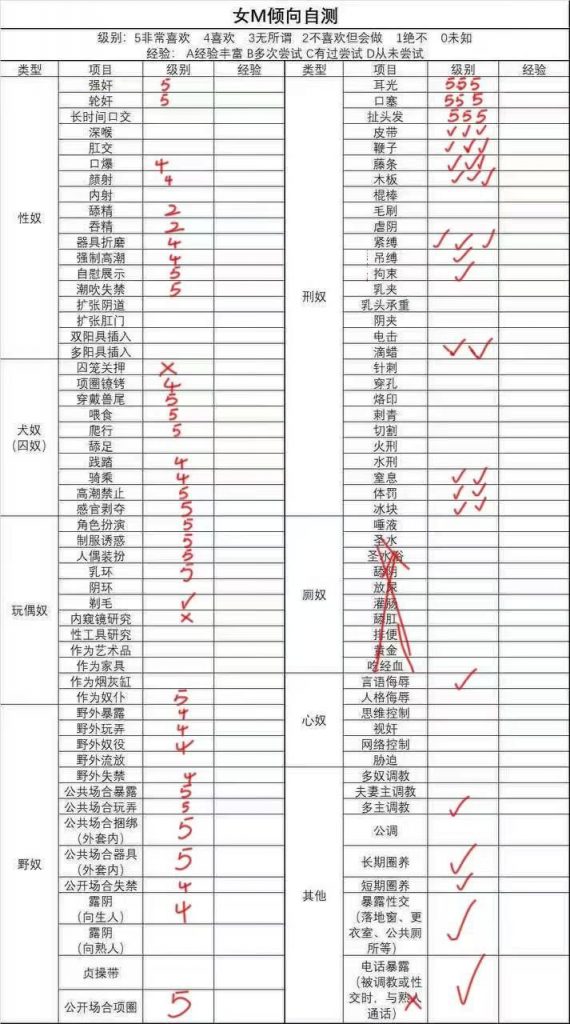 女M倾向自测
级别:5非常喜欢 4喜欢 3无所谓 2不喜欢但会做 1绝不 0未知
经验: A经验丰富 B多次尝试 C有过尝试 D从未尝试
类型 项目 级别 经验
性奴
强奸 5
轮奸 5
长时间口交
深喉
肛交
口爆 4
颜射 4
内射
舔精 2
吞精 2
器具折磨 4
强制高潮 4
自慰展示 5
潮吹失禁 5
扩张阴道
扩张肛门
双阳具插入
多阳具插入
犬奴
(囚奴)
囚笼关押 ×
项圈镣铐 4
穿戴兽尾 5
喂食 5
爬行 5
舔足
践踏 4
骑乘 4
高潮禁止 5
感官剥夺 5
玩偶奴
角色扮演 5
制服诱惑 5
人偶装扮 5
乳环 5
阴环
剃毛 ✓
内窥镜研究 ×
性工具研究
作为艺术品
作为家具
作为烟灰缸
作为奴仆 5
野奴
野外暴露 4
野外玩弄 4
野外奴役 4
野外流放
野外失禁 4
公共场合暴露 5
公共场合玩弄 5
公共场合捆绑
(外套内) 5
公共场合器具
(外套内) 5
公开场合失禁 4
露阴
(向生人) 4
露阴
(向熟人)
贞操带
公开场合项圈 5
类型 项目 级别 经验
刑奴
耳光 5 5 5
口塞 5 5 5
扯头发 5 5 5
皮带 ✓ ✓ ✓
鞭子 ✓ ✓ ✓
藤条 ✓ ✓ ✓
木板 ✓ ✓ ✓
棍棒
毛刷
虐阴
紧缚 ✓ ✓ ✓
吊缚 ✓
拘束 ✓
乳夹
乳头承重
阴夹
电击
滴蜡 ✓ ✓
针刺
穿孔
烙印
刺青
切割
火刑
水刑
窒息 ✓ ✓
体罚 ✓ ✓
冰块 ✓ ✓
厕奴
唾液
圣水
圣水浴
舔阴
放尿
灌肠
舔肛
排便
黄金
吃经血
心奴
言语侮辱 ✓
人格侮辱
思维控制
视奸
网络控制
胁迫
其他
多奴调教
夫妻主调教
多主调教 ✓
公调
长期圈养 ✓
短期圈养 ✓
暴露性交
(落地窗、更
衣室、公共厕
所等) ✓
电话暴露
(被调教或性
交时,与熟人
通话) ✓